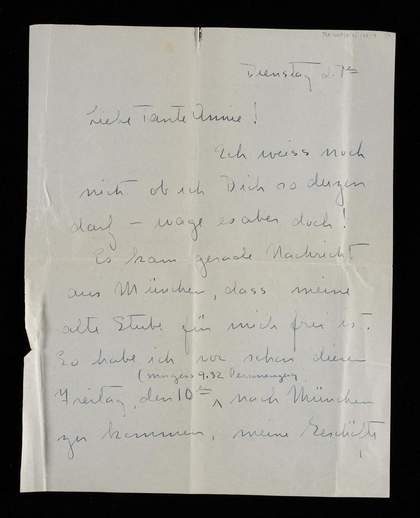 Dienstag d. 7ten
Liebe Tante Annie!
Ich weiss noch
nicht ob ich Dich so duzen
darf – wage es aber doch!
Es kam gerade Nachricht
aus München, dass meine
alte Stube für mich frei ist.
So habe ich vor schon diesen
(morgens 9.32
Freitag, den 10ten nach München
zu kommen, meine Geschäfte